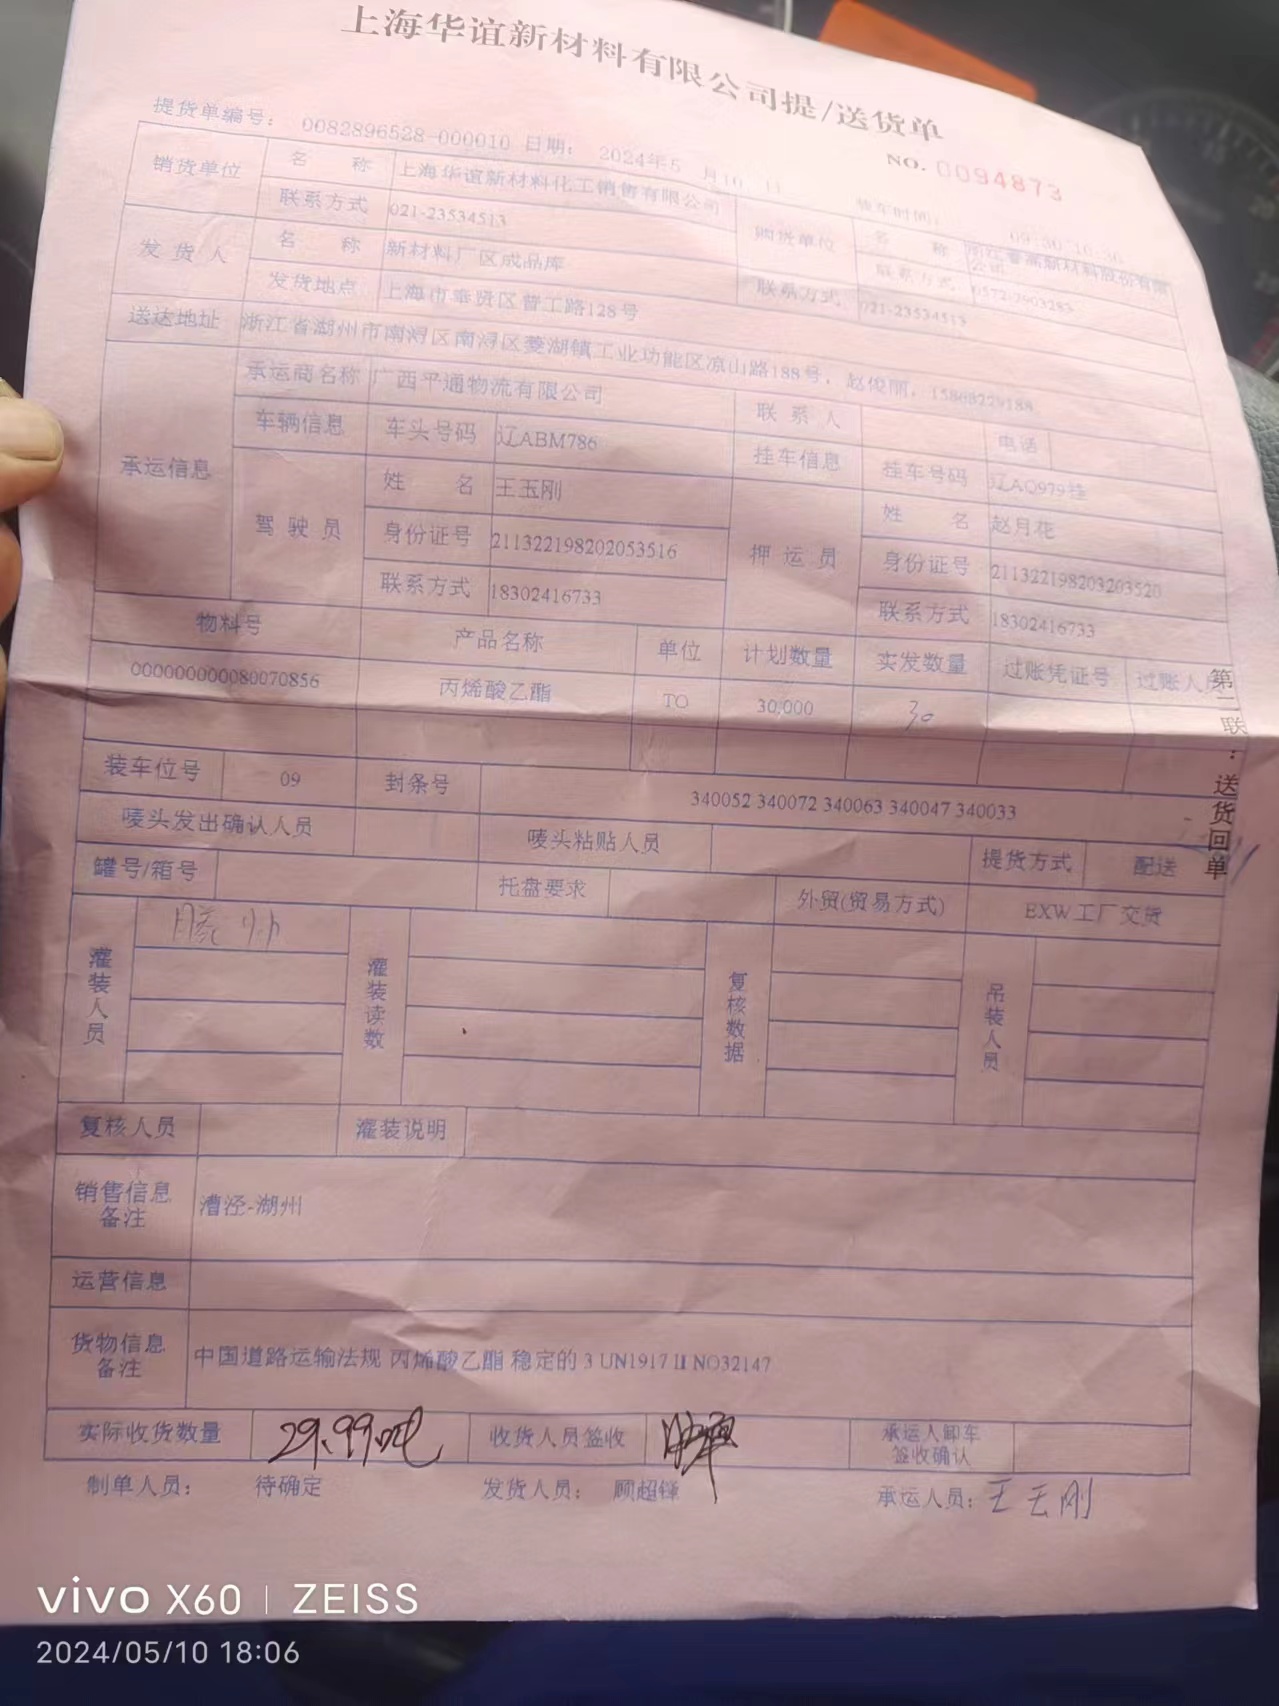 上海华谊新材料有限公司提/送货单
NO. 0094873
提货单编号： 0082896528-000010 日期： 2024年5 月10 日 装车时间：
销货单位 名 称 上海华谊新材料化工销售有限公司 购货单位 名 称
联系方式 021-23534513 联系方式 0572-2903283
发货人 名 称 新材料厂区成品库 联系方式 021-23534513
发货地点 上海市奉贤区普工路128号
送达地址 浙江省湖州市南浔区南浔区菱湖镇工业功能区凉山路188号，赵俊丽，
承运信息 承运商名称 广西平通物流有限公司 联系人 电话
车辆信息 车头号码 辽ABM786 挂车信息 挂车号码 辽AQ979挂
驾驶员 姓 名 王玉刚 押运员 姓 名 赵月花
身份证号 211322198202053516 身份证号 211322198203203520
联系方式 18302416733 联系方式 18302416733
物料号 产品名称 单位 计划数量 实发数量 过账凭证号 过账人员
000000000080070856 丙烯酸乙酯 TO 30,000 30
装车位号 09 封条号 340052 340072 340063 340047 340033
唛头发出确认人员 唛头粘贴人员 提货方式 配送
罐号/箱号 托盘要求 外贸(贸易方式) EXW工厂交货
灌装人员 灌装读数 复核数据 吊装人员
复核人员 灌装说明
销售信息备注 漕泾-湖州
运营信息
货物信息备注 中国道路运输法规 丙烯酸乙酯 稳定的 3 UN1917 II NO32147
实际收货数量 29.99吨 收货人员签收 承运人卸车签收确认
制单人员： 待确定 发货人员： 顾超锋 承运人员：王玉刚
第二联：送货回单
vivo X60 | ZEISS
2024/05/10 18:06